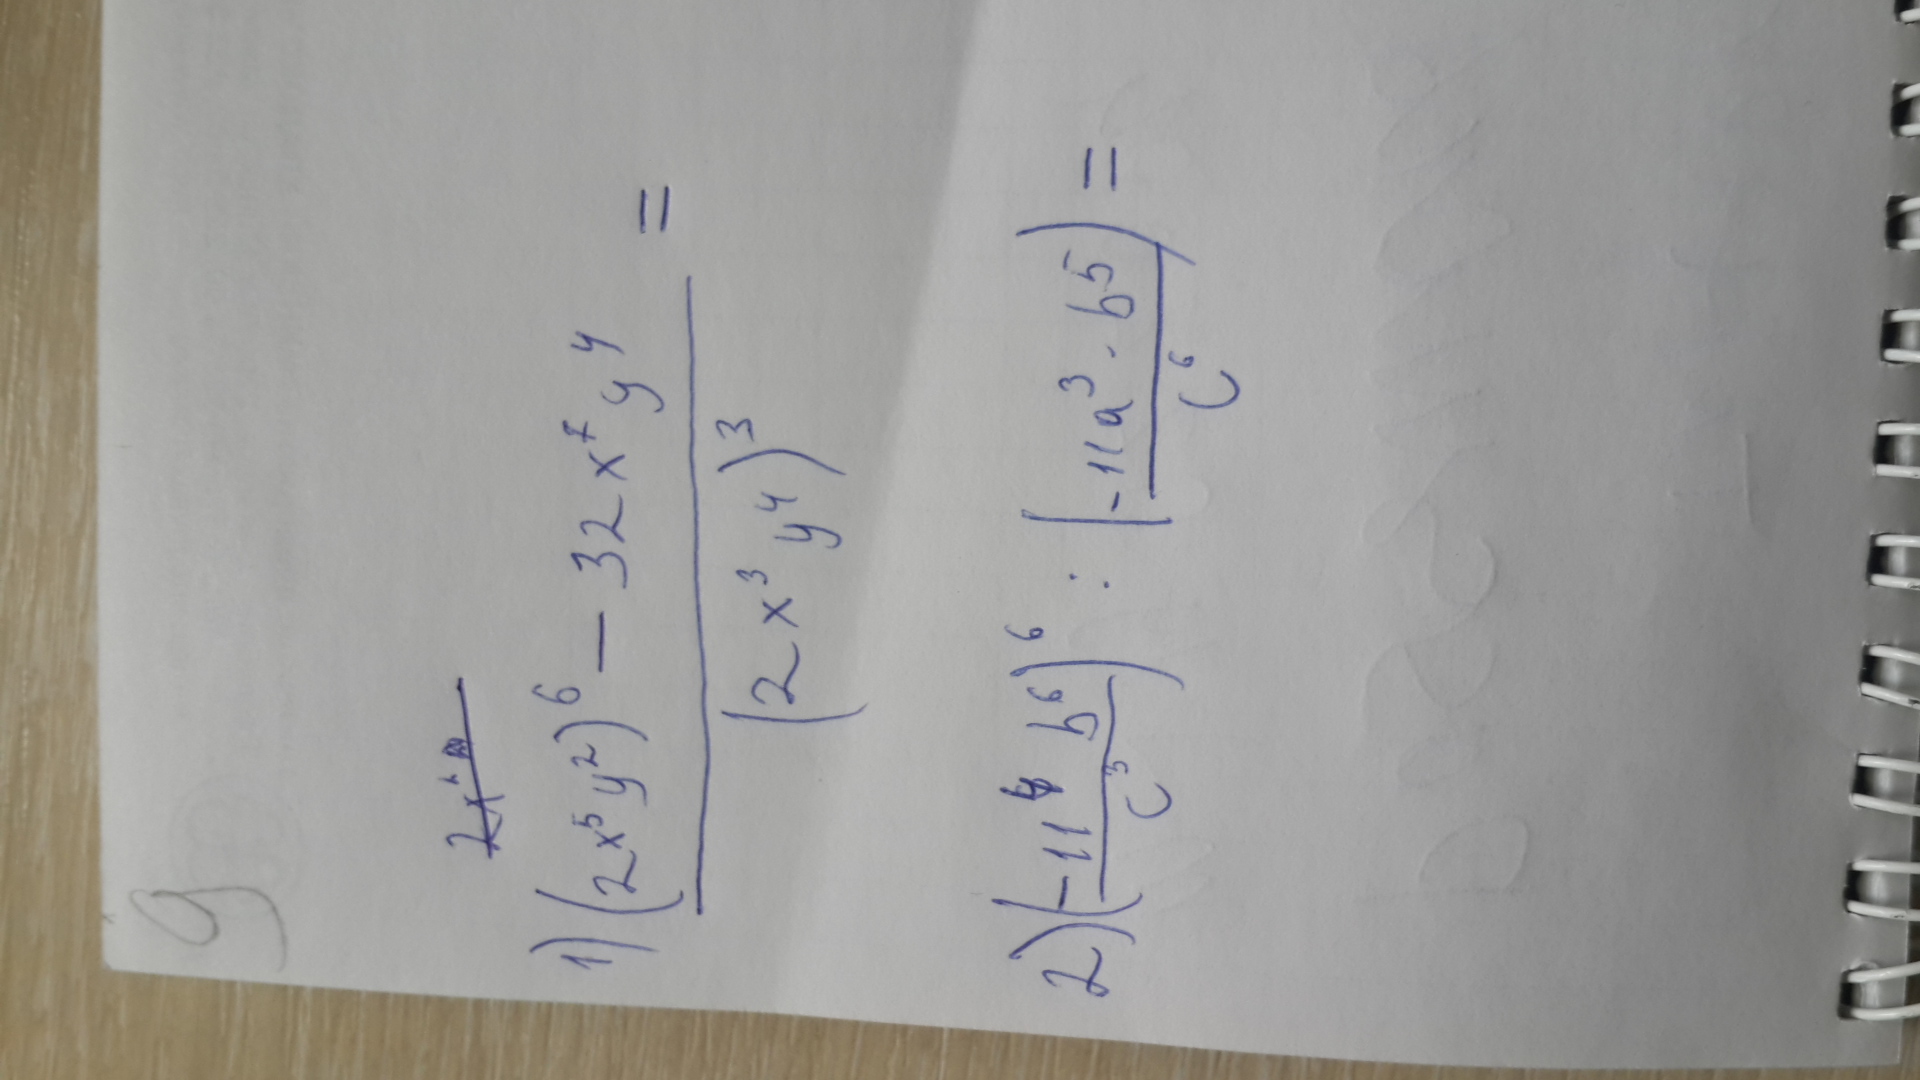 g
1) (2x⁵y²)⁶ – 32x⁷y⁴ =
(2x³y⁴)³
2) (-11 b⁶)⁶ : (-11a³ · b⁵) =
c³ c⁶